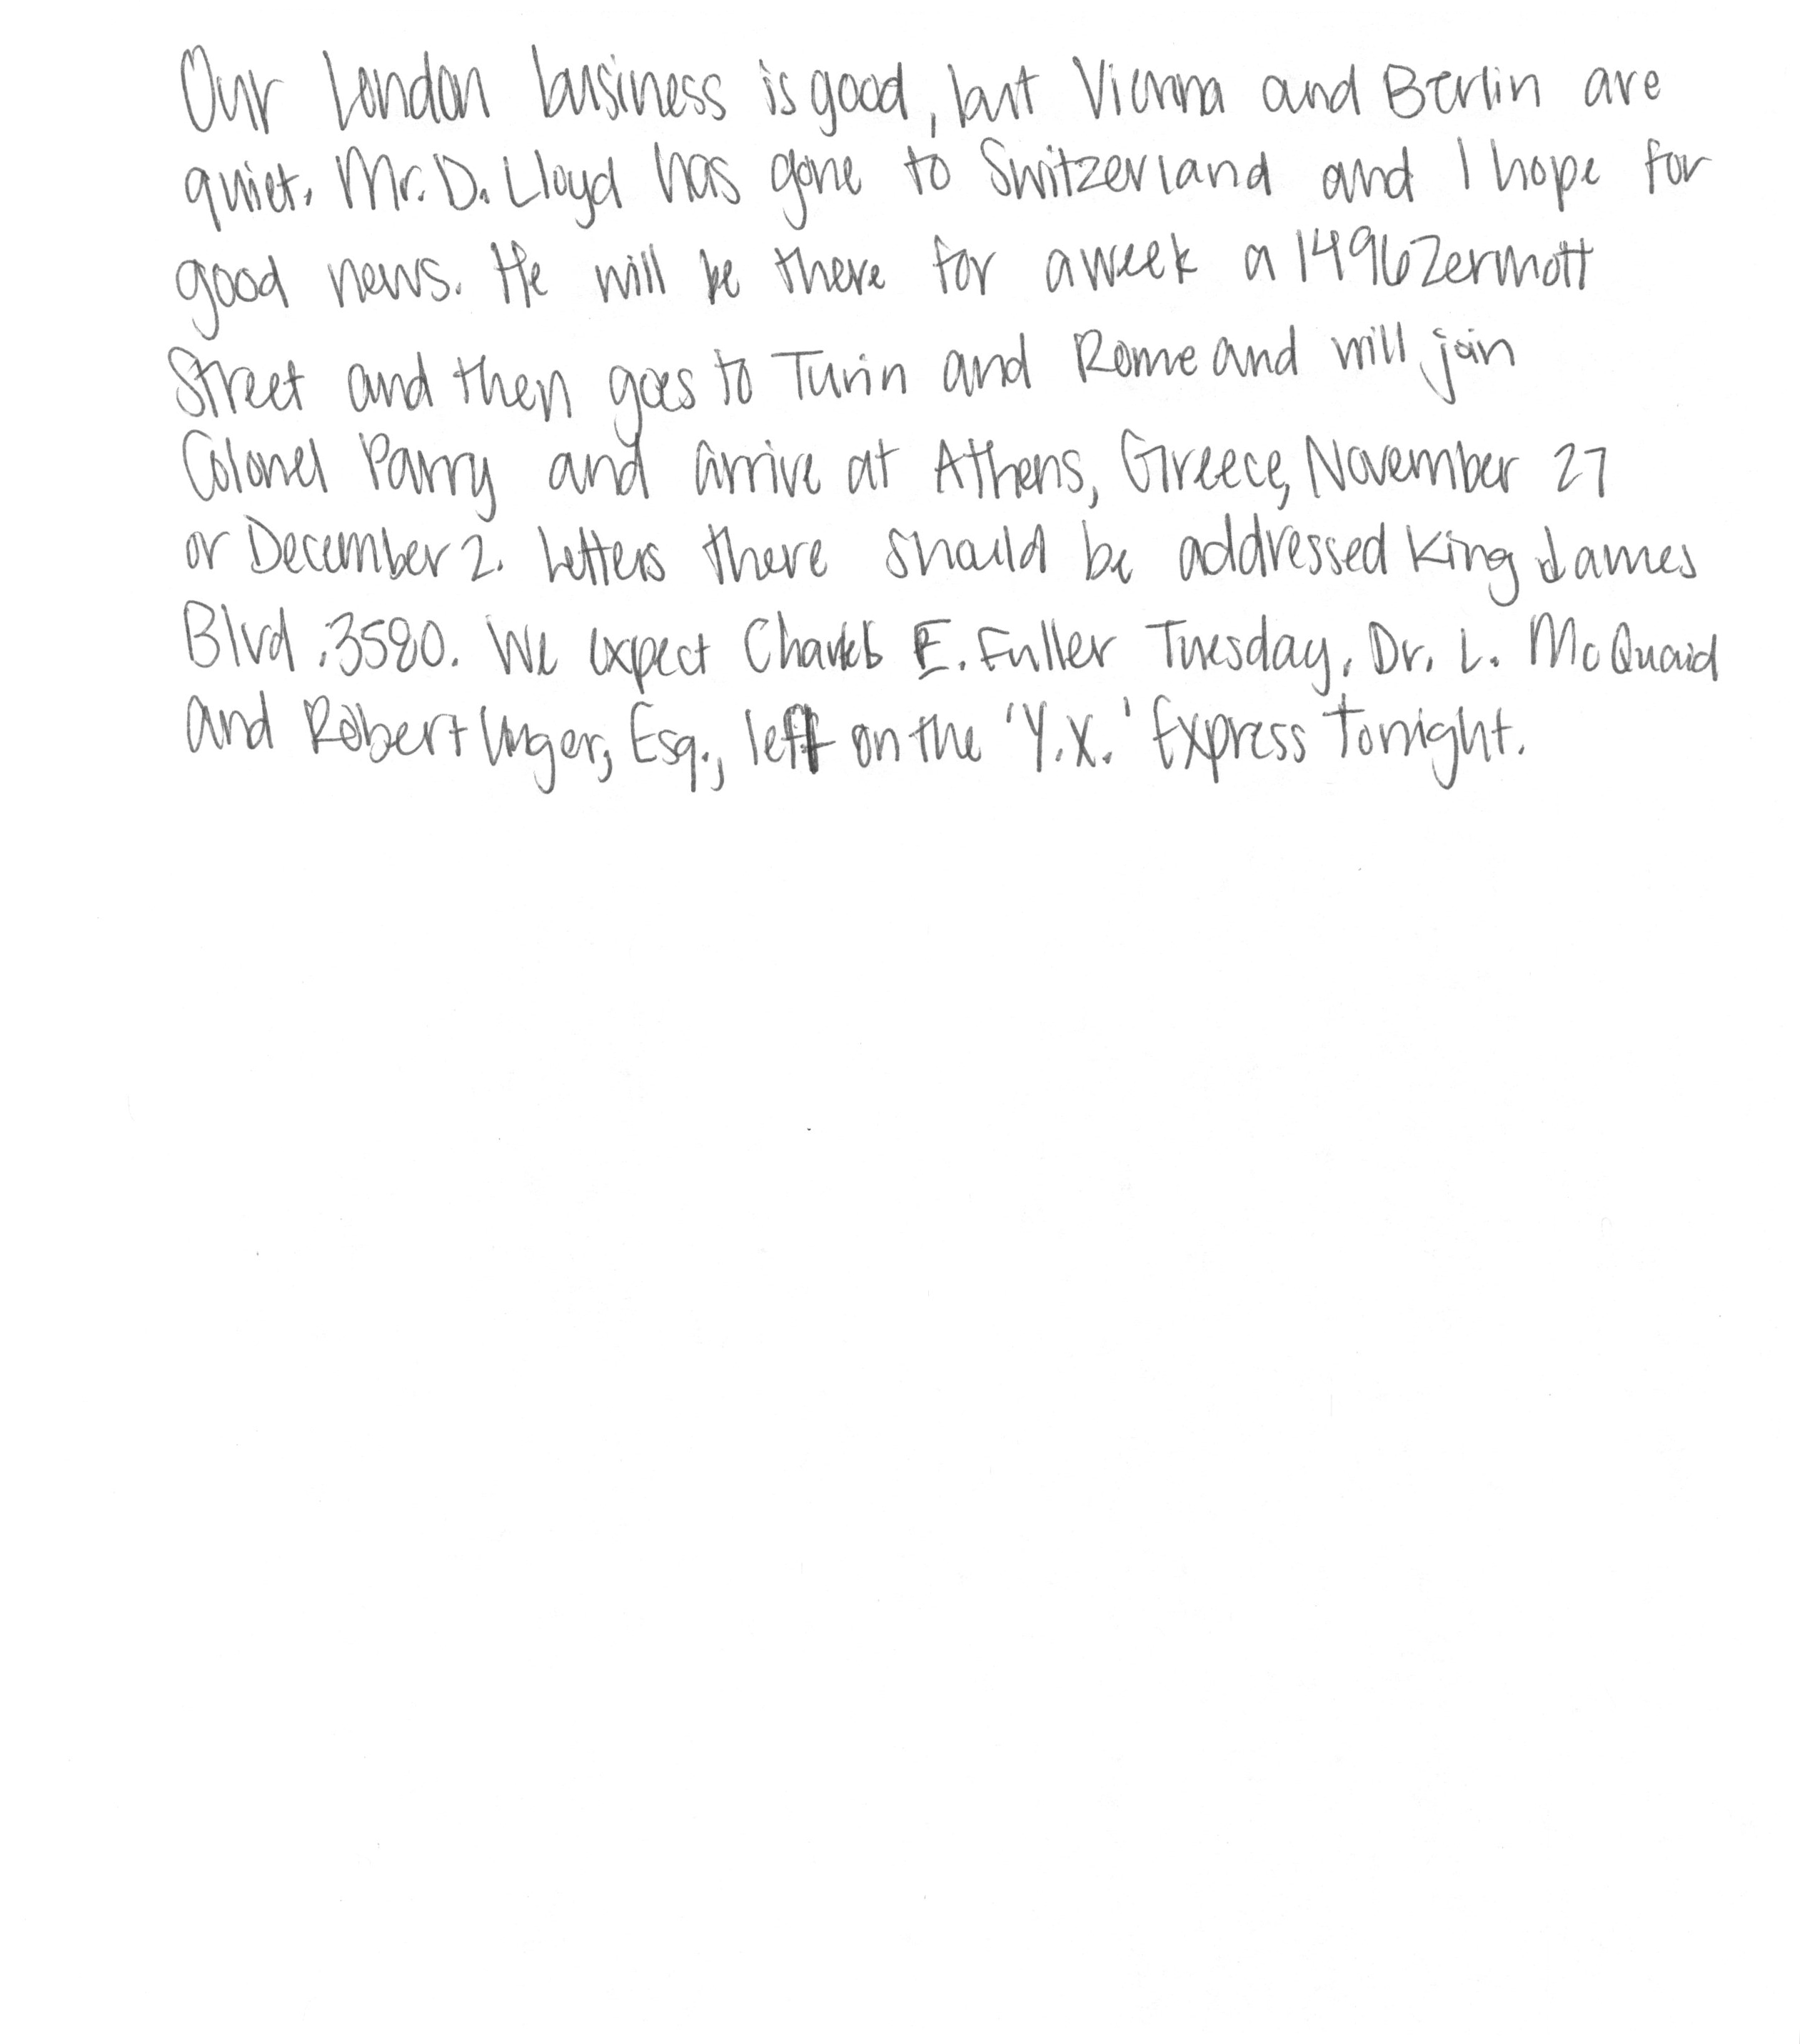 Our London business is good, but Vienna and Berlin are
quiet. Mr. D. Lloyd has gone to Switzerland and I hope for
good news. He will be there for a week a 1496 Zermott
Street and then goes to Turin and Rome and will join
Colonel Parry and arrive at Athens, Greece, November 27
or December 2. Letters there should be addressed King James
Blvd. 3580. We expect Charles E. Fuller Tuesday. Dr. L. McQuaid
and Robert Unger, Esq., left on the 'Y.X.' Express tonight.